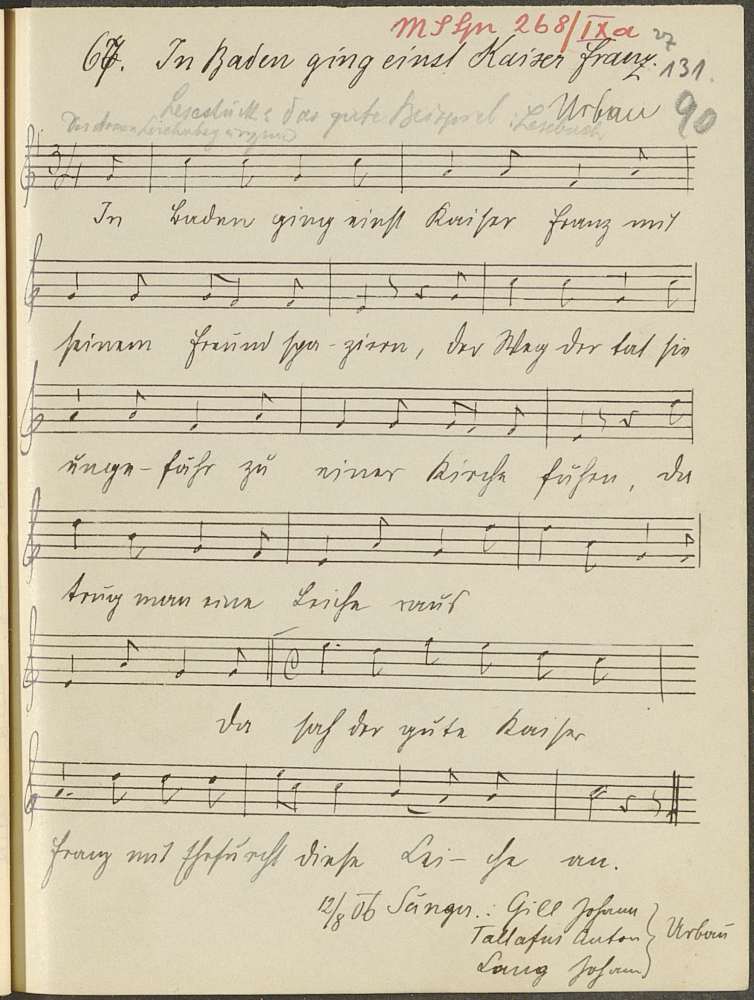 MSGn 268/IXa
67. In Baden ging einst Kaiser Franz.
131.
Lesestück: das gute Beispiel : Lesebuch
Urbau
90
Des Armen Leichenbegängnis
3/4
In Baden ging einst Kaiser Franz mit
seinem Freund spa-ziern, der Weg der tat sie
unge-fähr zu einer Kirche führn, da
trug man eine Leiche raus
Da sah der gute Kaiser
Franz mit Ehrfurcht diese Lei-che an.
12/8 06 Sänger.: Gill Johann
Tallafus Anton
Urbau
Lang Johann